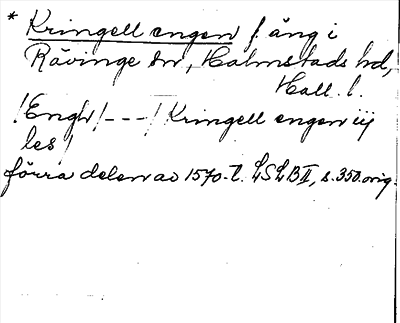 * Kringell engen f. äng i
Rävinge sn, Halmstads hd,
Hall. l.
! Engh / - - - / Kringell engen iij
les /
förra delen av 1570-t. LSLB II, s. 350. orig.